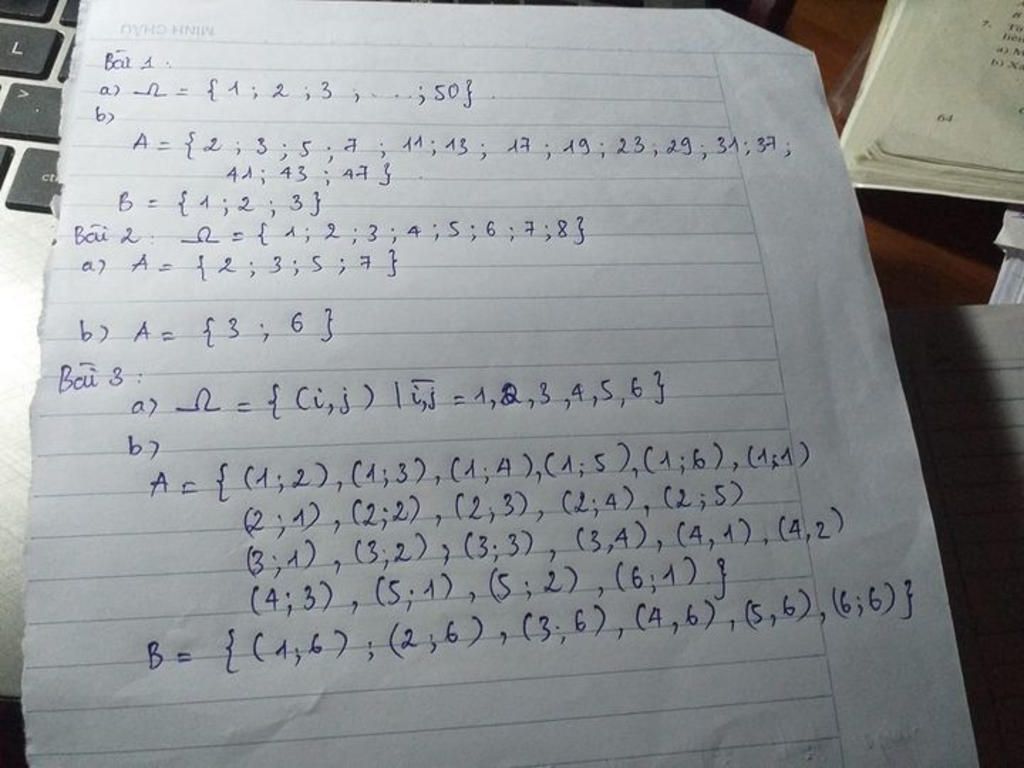 MINH CHÂU
L
ctr
7.
64
Bài 1:
a) Ω = { 1 ; 2 ; 3 ; ... ; 50}.
b)
A = { 2 ; 3 ; 5 ; 7 ; 11 ; 13 ; 17 ; 19 ; 23 ; 29 ; 31 ; 37 ;
41 ; 43 ; 47 } .
B = { 1 ; 2 ; 3 }
Bài 2 : Ω = { 1 ; 2 ; 3 ; 4 ; 5 ; 6 ; 7 ; 8 }
a) A = { 2 ; 3 ; 5 ; 7 }
b) A = { 3 ; 6 }
Bài 3 :
a) Ω = { (i,j) | i,j = 1,2,3,4,5,6 }
b)
A = { (1;2), (1;3), (1;4), (1;5), (1;6), (1;1)
(2;1), (2;2), (2;3), (2;4), (2;5)
(3;1), (3;2), (3;3), (3,4), (4,1), (4,2)
(4;3), (5;1), (5;2), (6;1) }
B = { (1,6) ; (2;6), (3;6), (4,6), (5,6), (6;6) }